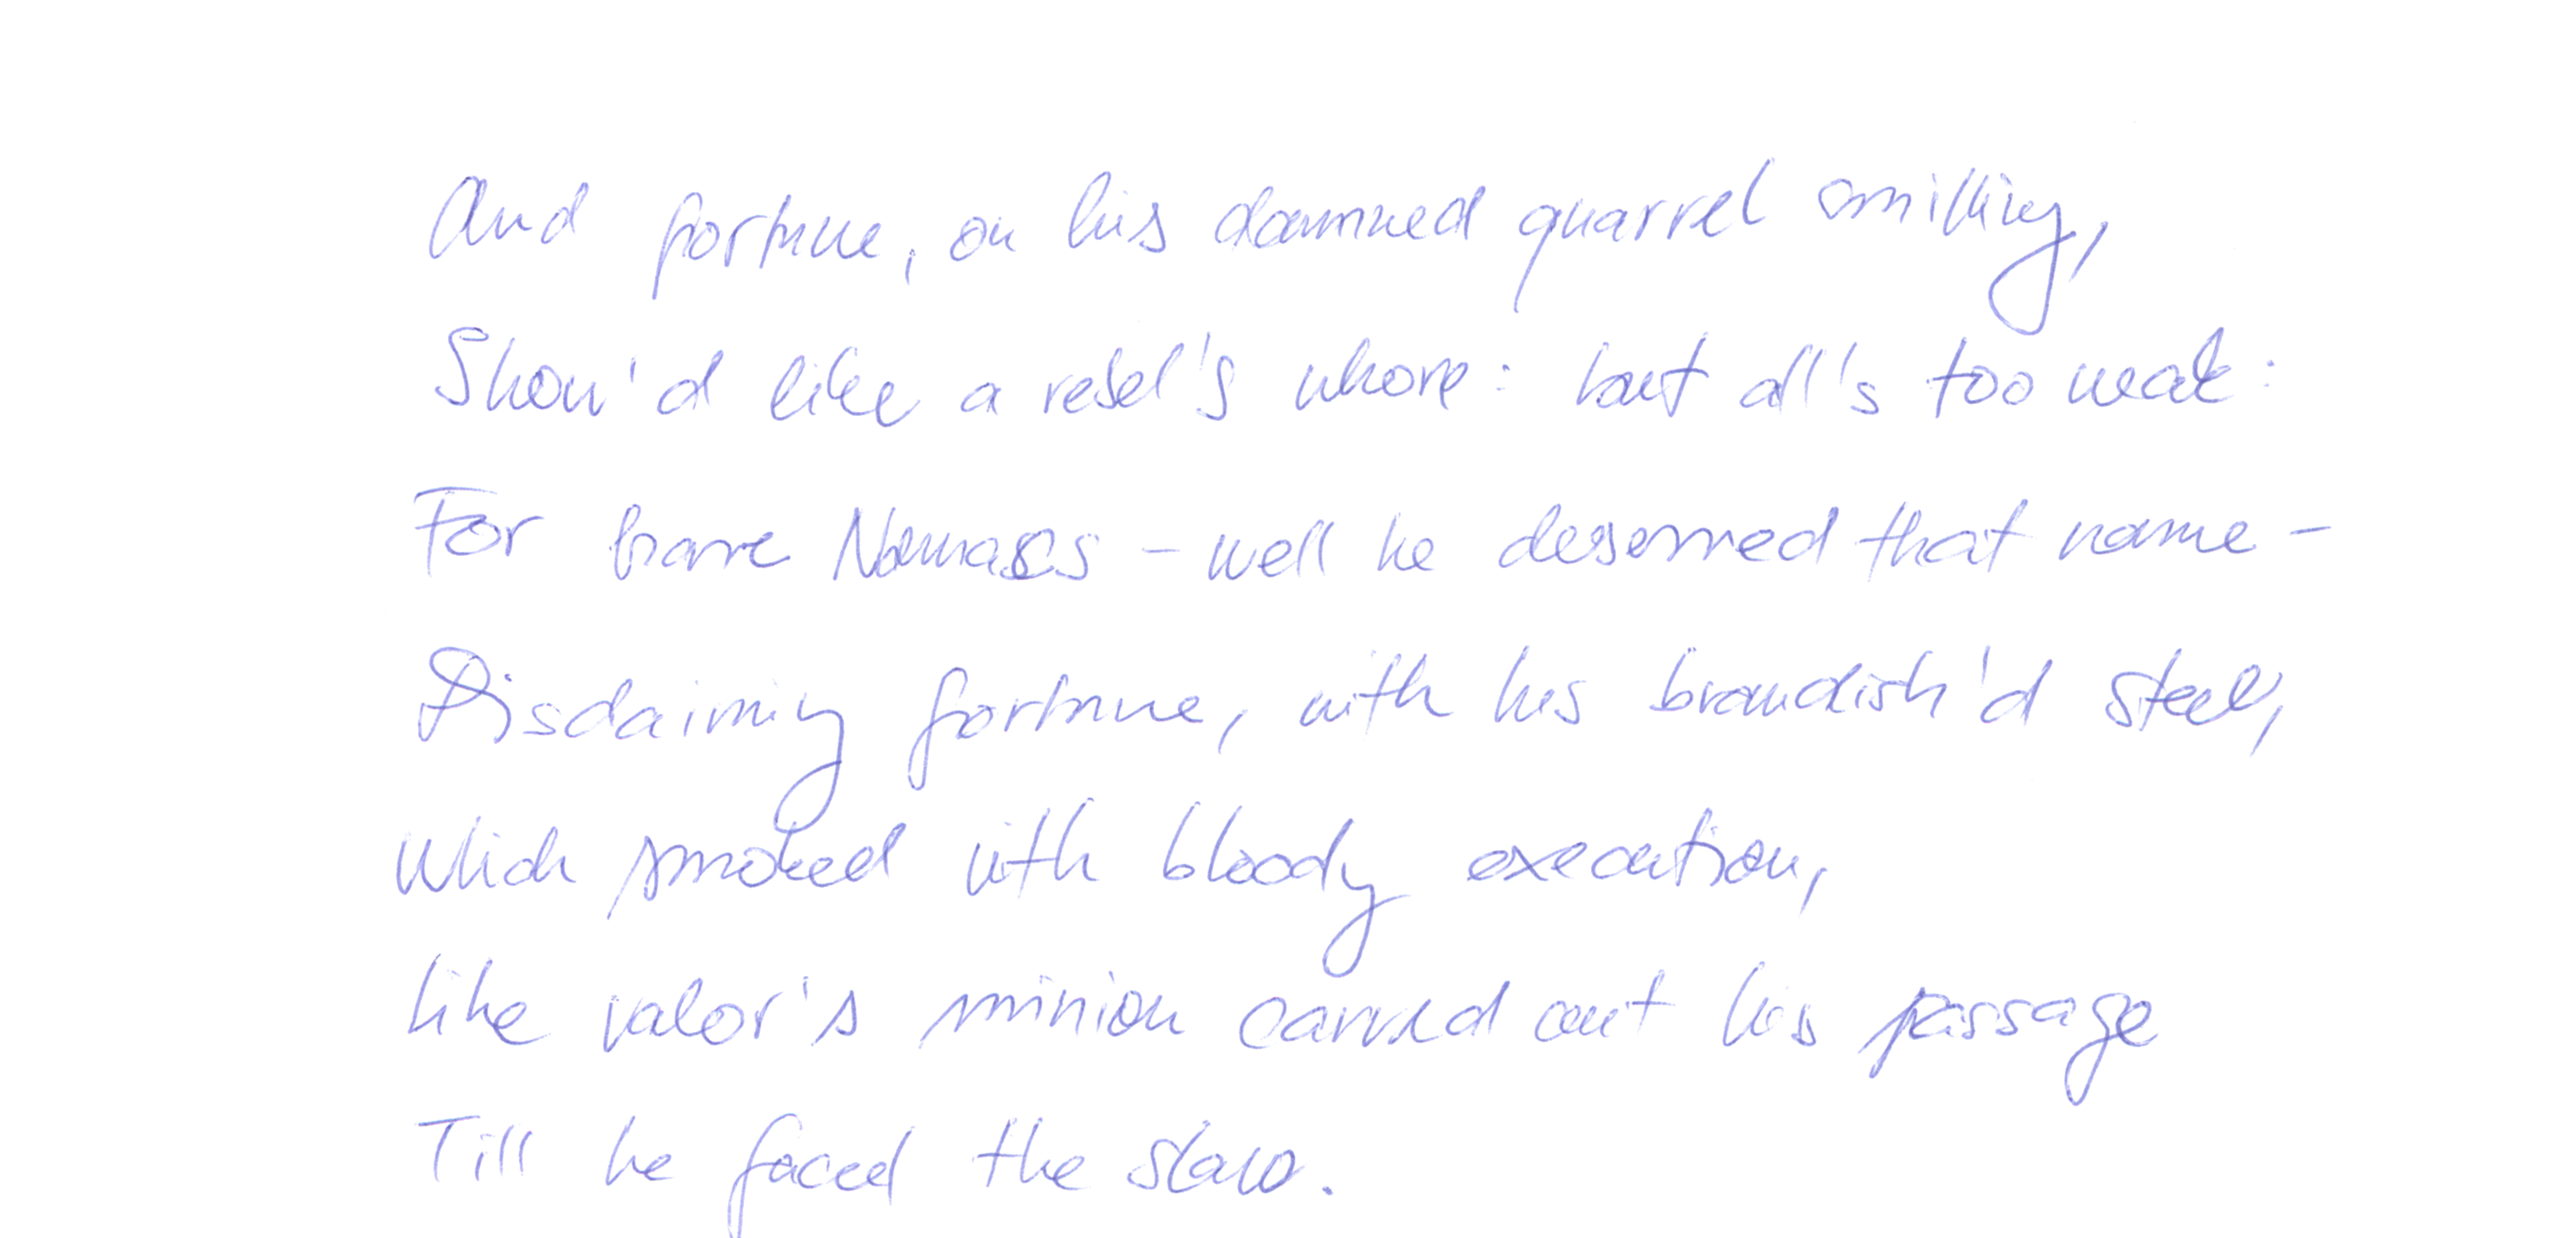 And fortune, on his damned quarrel smilling,
Show'd like a rebel's whore: but all's too weak:
For brave Nomacs - well he deserved that name -
Disdaining fortune, with his brandish'd steel,
Which smoked with bloody execution,
like valor's minion carved out his passage
Till he faced the slave.